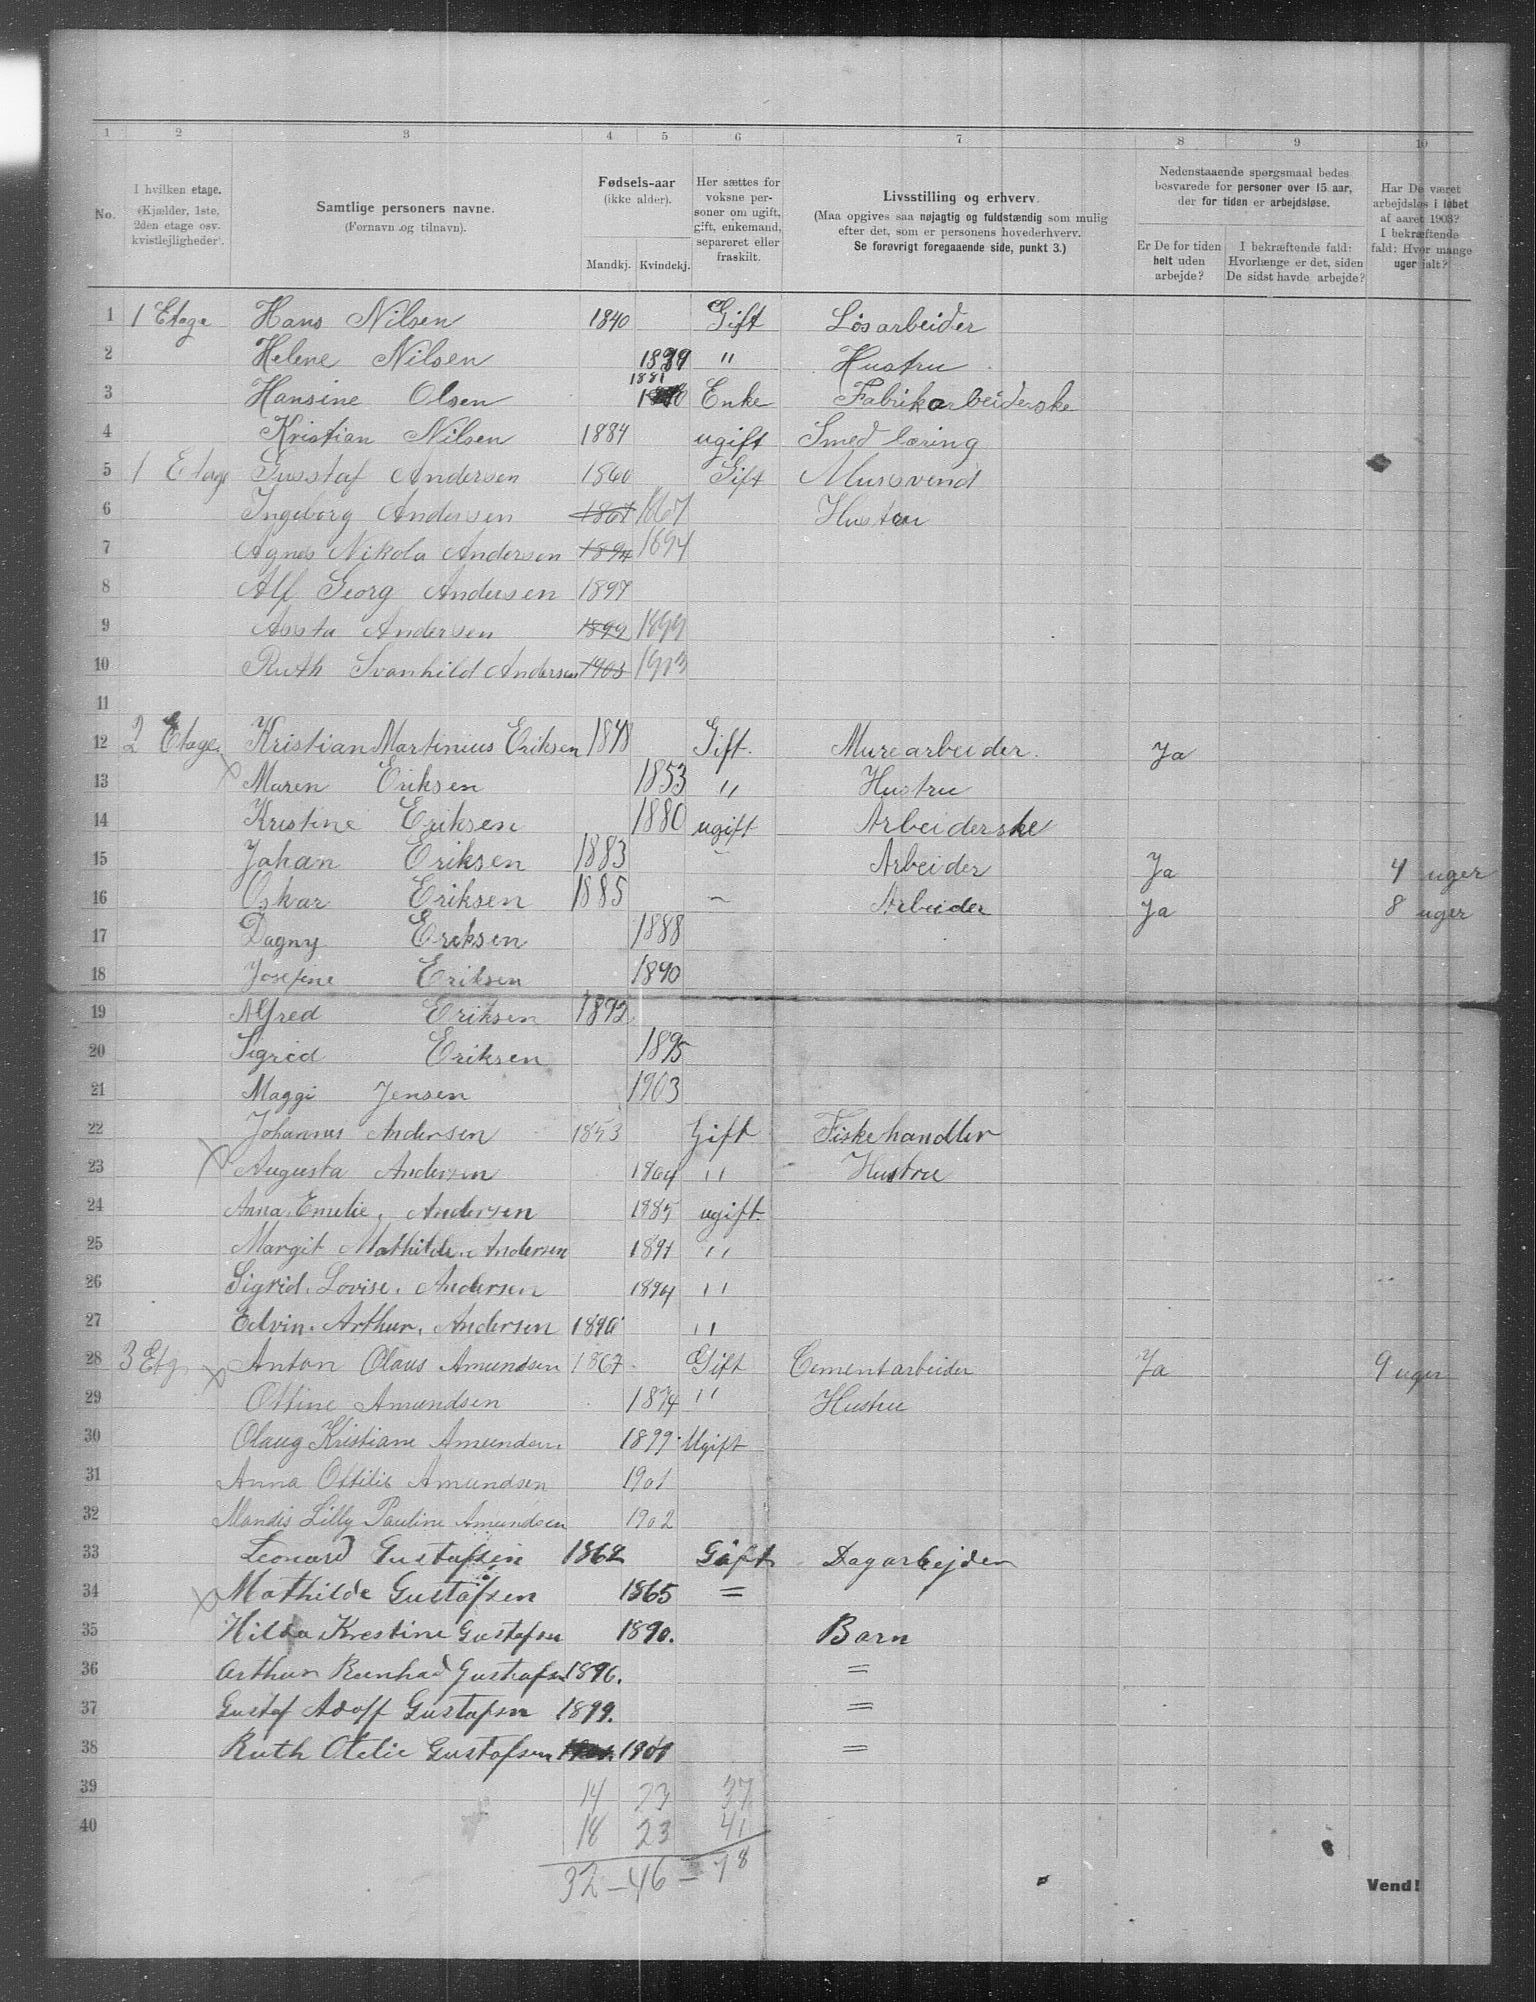 1 2 3 4 5 6 7 8 9 10
No.
I hvilken etage.
(Kjælder, 1ste, 2den etage osv. kvistlejligheder).
Samtlige personers navne.
(Fornavn og tilnavn).
Fødsels-aar
(ikke alder).
Mandkj. Kvindekj.
Her sættes for voksne personer om ugift, gift, enkemand, separeret eller fraskilt.
Livsstilling og erhverv.
(Maa opgives saa nøjagtig og fuldstændig som mulig efter det, som er personens hovederhverv.
Se forøvrigt foregaaende side, punkt 3.)
Nedenstaaende spørgsmaal bedes besvarede for personer over 15 aar, der for tiden er arbejdsløse.
Er De for tiden helt uden arbejde?
I bekræftende fald: Hvorlænge er det, siden De sidst havde arbejde?
Har De været arbejdsløs i løbet af aaret 1903? I bekræftende fald: Hvor mange uger ialt?
1 1 Etage Hans Nilsen 1840 Gift Løsarbeider
2 Helene Nilsen 1839 " Hustru
3 Hansine Olsen 1881 Enke Fabrikarbeiderske
4 Kristian Nilsen 1884 ugift Smed læring
5 1 Etage Gustaf Andersen 1860 Gift Mursvend
6 Ingeborg Andersen 1867 1867 Hustru
7 Agnes Nikola Andersen 1894 1894
8 Alf Georg Andersen 1897
9 Aasta Andersen 1899 1899
10 Ruth Svanhild Andersen 1903 1903
11
12 2 Etage Kristian Martinius Eriksen 1848 Gift. Murearbeider. Ja
13 Maren Eriksen 1853 " Hustru
14 Kristine Eriksen 1880 ugift Arbeiderske
15 Johan Eriksen 1883 – Arbeider Ja 4 uger
16 Oskar Eriksen 1885 – Arbeider Ja 8 uger
17 Dagny Eriksen 1888
18 Josefine Eriksen 1890
19 Alfred Eriksen 1892
20 Sigrid Eriksen 1895
21 Maggi Jensen 1903
22 Johannes Andersen 1853 Gift Fiskehandler
23 Augusta Andersen 1864 " Hustru
24 Anna. Emelie. Andersen 1885 ugift.
25 Margit Mathilde. Andersen 1891 "
26 Sigrid. Lovise. Andersen 1894 "
27 Edvin. Arthur. Andersen "
28 3 Etg Anton Olaus Amundsen 1867 Gift Cementarbeider Ja 9 uger
29 Ottine Amundsen 1874 " Hustru
30 Olaug Kristiane Amundsen 1899 Ugift
31 Anna Ottilie Amundsen 1901
32 Mandis Lilly Pauline Amundsen 1902
33 Leonard Gustafsen 1862 Gift Dagarbejder
34 Mathilde Gustafsen 1865 =
35 Hilda Krestine Gustafsen 1890. Barn
36 Arthur Gustafsen 1896. =
37 Gustaf Adolf Gustafsen 1899. =
38 Ruth Otelie Gustafsen 1901 =
39 14 23 37
40 18 23 41
32 – 46 = 78
Vend!